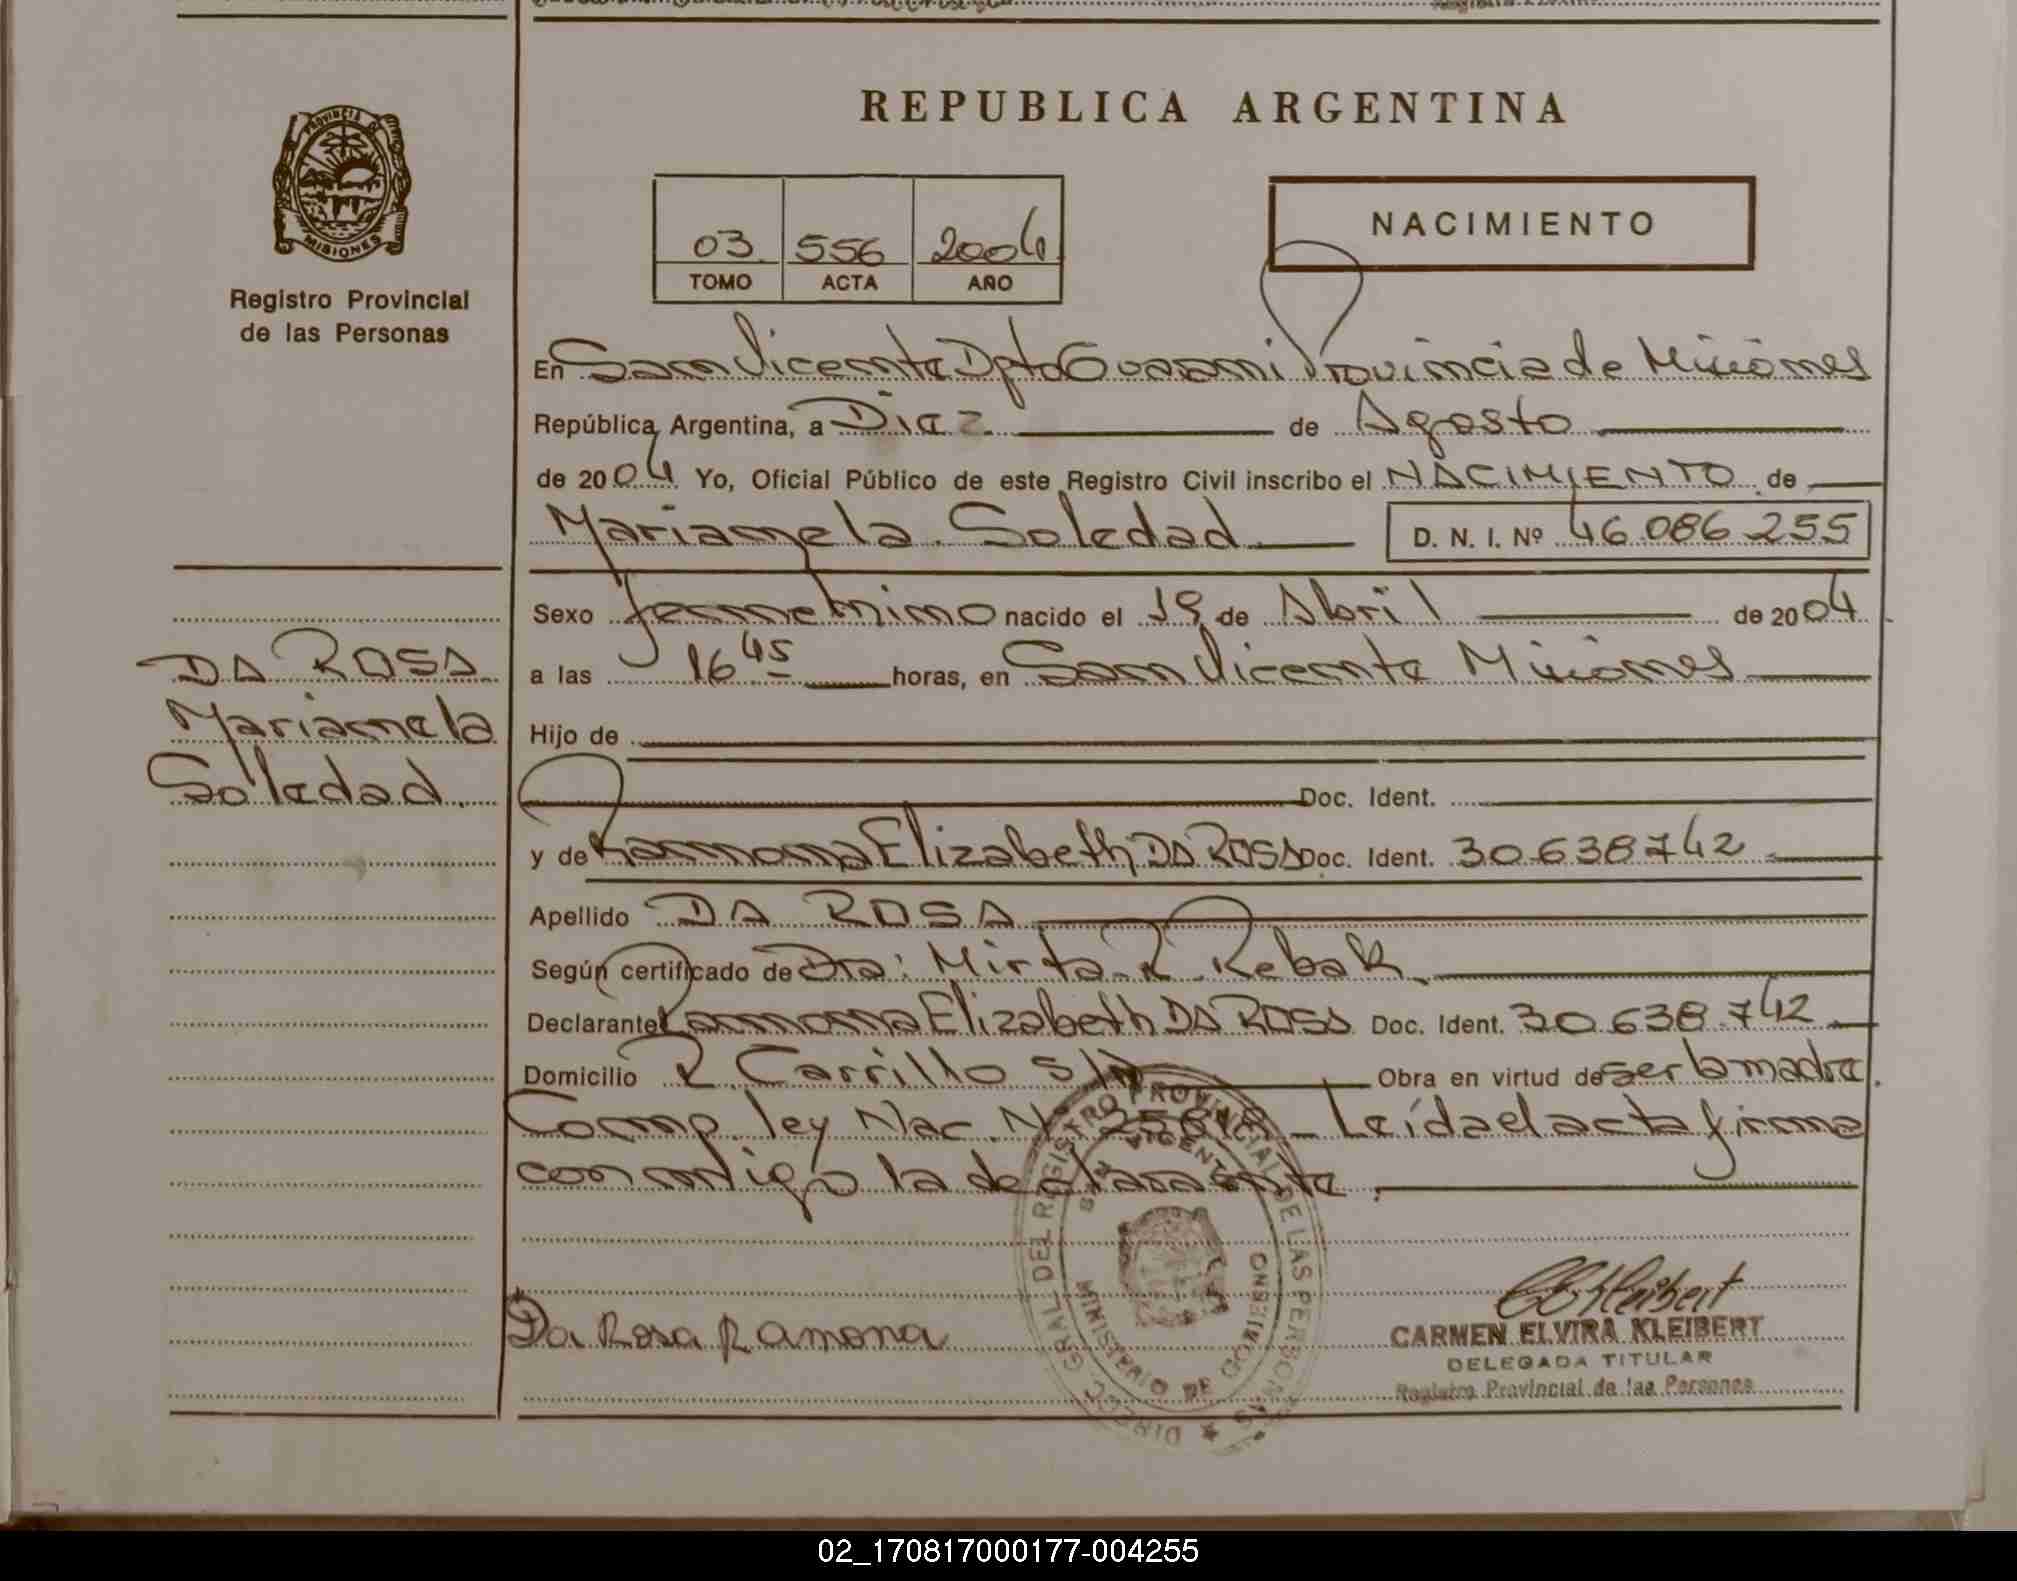 REPUBLICA ARGENTINA
PROVINCIA DE
MISIONES
Registro Provincial
de las Personas
03 556 2004
TOMO ACTA AÑO
NACIMIENTO
En San Vicente Dpto Guarani Provincia de Misiones
República Argentina, a Diez de Agosto
de 2004 Yo, Oficial Público de este Registro Civil inscribo el NACIMIENTO de
Marianela Soledad D. N. I. Nº 46.086.255
Sexo femenino nacido el 19 de Abril de 2004
a las 16 45 horas, en San Vicente Misiones
DA ROSA
Marianela
Soledad
Hijo de
Doc. Ident.
y de Ramona Elizabeth DA ROSA Doc. Ident. 30.638.742
Apellido DA ROSA
Según certificado de Dra: Mirta R. Rebak
Declarante Ramona Elizabeth DA ROSA Doc. Ident. 30.638.742
Domicilio R. Carrillo s/n Obra en virtud de ser la madre.
Comp. ley Nac. Nº 25818 - Leída el acta firma
conmigo la declarante.
DIREC. GRAL DEL REGISTRO PROVINCIAL DE LAS PERSONAS
SAN VICENTE
MINISTERIO DE GOBIERNO
Da Rosa Ramona
CEKleibert
CARMEN ELVIRA KLEIBERT
DELEGADA TITULAR
Registro Provincial de las Personas
02_170817000177-004255